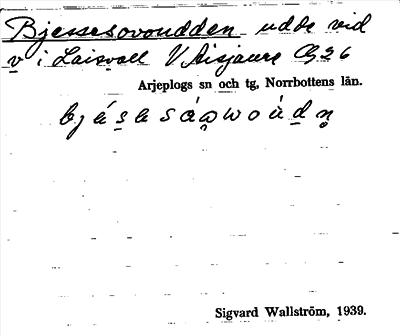 Bjessesovoudden udde vid
v i Laisvall V Aisjaure Q 26
Arjeplogs sn och tg, Norrbottens län.
Sigvard Wallström, 1939.